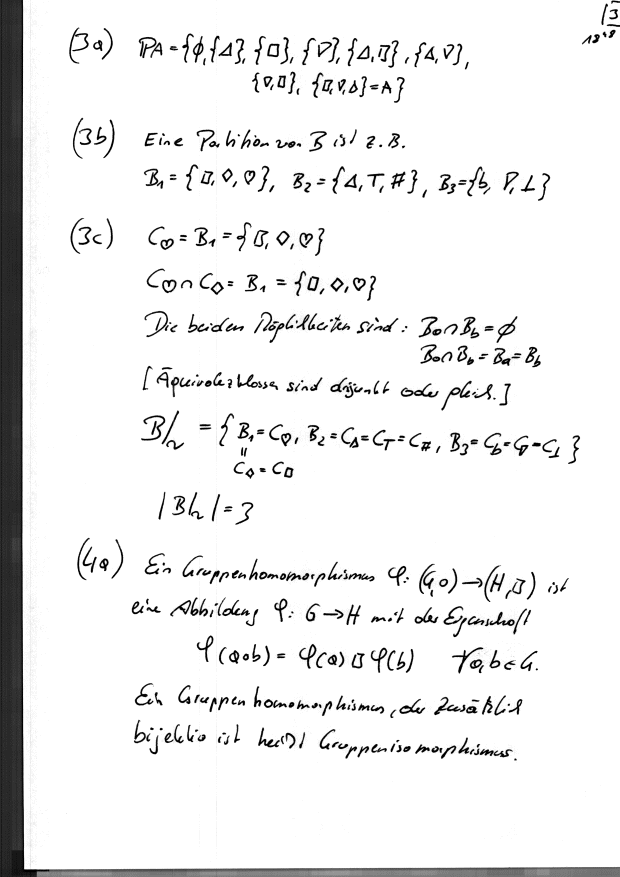 |3
18
(3a) PA = {∅, {Δ}, {□}, {∇}, {Δ,□}, {Δ,∇},
{∇,□}, {□,∇,Δ} = A}
(3b) Eine Partition von B ist z.B.
B₁ = {□, ◇, ♡}, B₂ = {Δ, T, #}, B₃ = {b, ∇, ⊥}
(3c) C♡ = B₁ = {□, ◇, ♡}
C♡ ∩ C◇ = B₁ = {□, ◇, ♡}
Die beiden Möglichkeiten sind: Ba ∩ Bb = ∅
Ba ∩ Bb = Ba = Bb
[Äquivalenzklassen sind disjunkt oder gleich.]
B/~ = {B₁ = C♡, B₂ = CΔ = CT = C#, B₃ = Cb = C∇ = C⊥}
=
C◇ = C□
|B/~| = 3
(4a) Ein Gruppenhomomorphismus φ: (G,∘) → (H,□) ist
eine Abbildung φ: G → H mit der Eigenschaft
φ(a∘b) = φ(a) □ φ(b) ∀a,b∈G.
Ein Gruppenhomomorphismus, der zusätzlich
bijektiv ist heißt Gruppenisomorphismus.